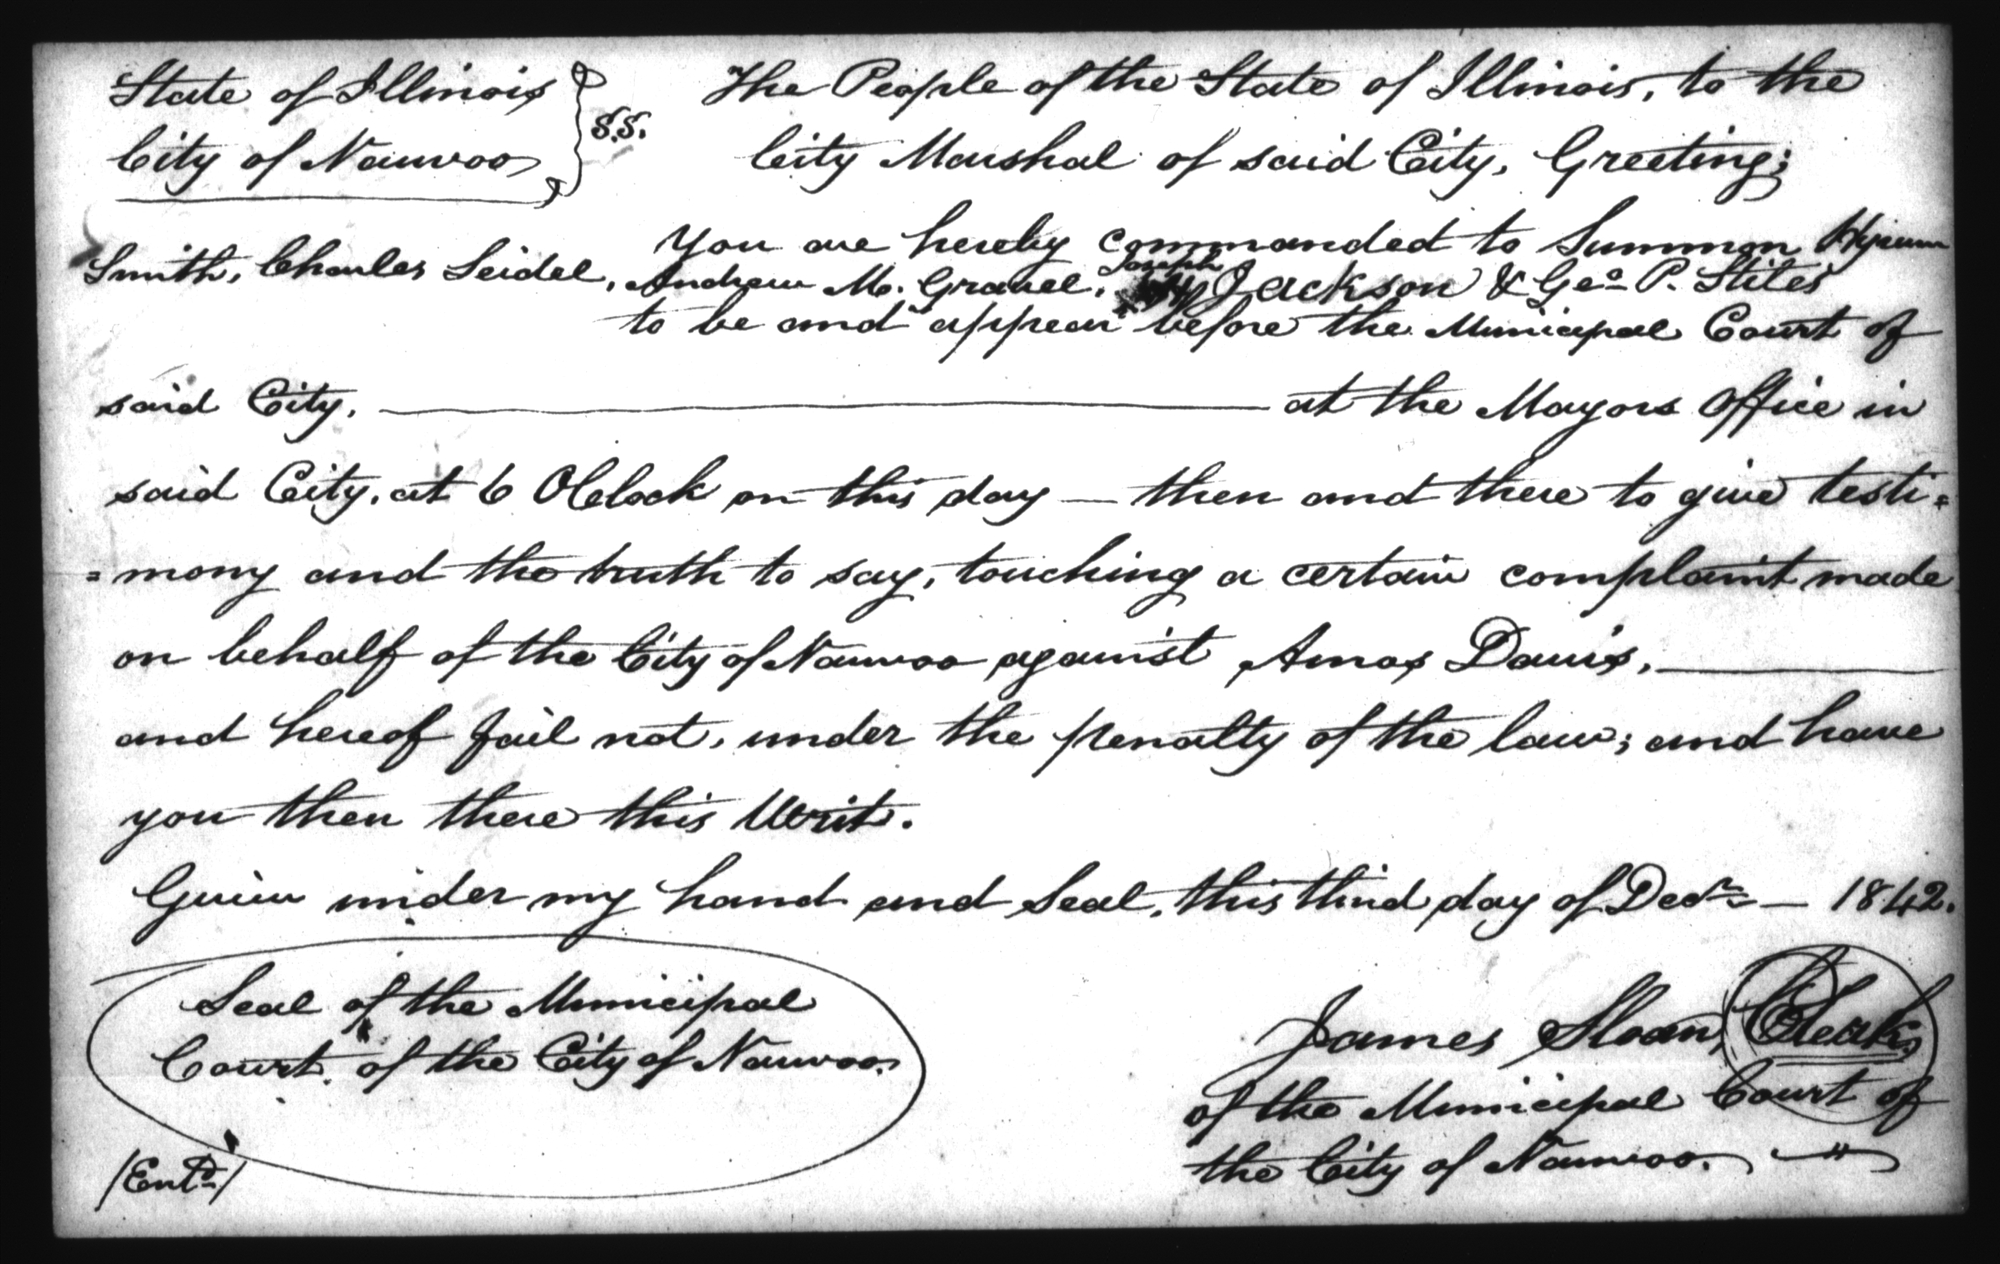 State of Illinois } S.S. The People of the State of Illinois, to the
City of Nauvoo City Marshal of said City, Greeting;
You are hereby commanded to Summon Hyrum
Smith, Charles Seidel, Andrew M. Gravel, Joseph Jackson & Geo. P. Stiles
to be and appear before the Municipal Court of
said City, at the Mayors Office in
said City, at 6 OClock on this day — then and there to give testi=
=mony and the truth to say, touching a certain complaint made
on behalf of the City of Nauvoo against Amos Davis,
and hereof fail not, under the penalty of the law; and have
you then there this Writ.
Given under my hand and Seal, this third day of Decr. — 1842.
Seal of the Municipal
Court of the City of Nauvoo.
James Sloan, Clerk,
of the Municipal Court of
the City of Nauvoo.
/Entd./